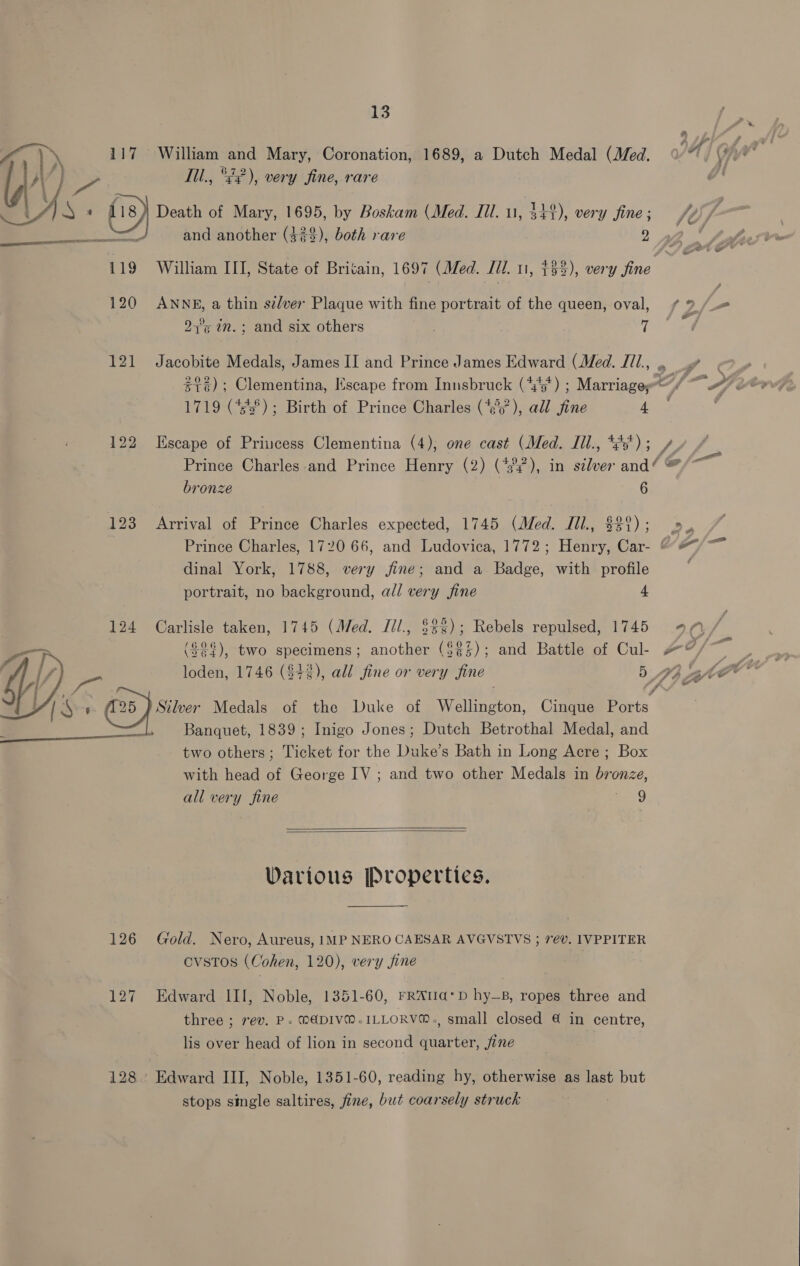 13
117 William and Mary, Coronation, 1689, a Dutch Medal (Med.
Ill., ), very fine, rare
118 Death of Mary, 1695, by Boskam (Med. Ill. II, ), very fine;
and another ( ), both rare 2
119 William III, State of Britain, 1697 (Med. Ill. II, ), very fine
120 ANNE, a thin silver Plaque with fine portrait of the queen, oval,
in.; and six others 7
121 Jacobite Medals, James II and Prince James Edward (Med. Ill.,
); Clementina, Escape from Innsbruck ( ); Marriage,
1719 ( ); Birth of Prince Charles ( ), all fine 4
122 Escape of Princess Clementina (4), one cast (Med. Ill., );
Prince Charles and Prince Henry (2) ( ), in silver and
bronze 6
123 Arrival of Prince Charles expected, 1745 (Med. Ill., );
Prince Charles, 1720 66, and Ludovica, 1772; Henry, Car-
dinal York, 1788, very fine; and a Badge, with profile
portrait, no background, all very fine 4
124 Carlisle taken, 1745 (Med. Ill., ); Rebels repulsed, 1745
( ), two specimens; another ( ); and Battle of Cul-
loden, 1746 ( ), all fine or very fine 5
125 Silver Medals of the Duke of Wellington, Cinque Ports
Banquet, 1839; Inigo Jones; Dutch Betrothal Medal, and
two others; Ticket for the Duke's Bath in Long Acre; Box
with head of George IV; and two other Medals in bronze,
all very fine 9
Various Properties.
126 Gold. Nero, Aureus, IMP NERO CAESAR AVGVSTVS; rev. IVPPITER
CVSTOS (Cohen, 120), very fine
127 Edward III, Noble, 1351-60, hy–B, ropes three and
three; rev. small closed in centre,
lis over head of lion in second quarter, fine
128 Edward III, Noble, 1351-60, reading hy, otherwise as last but
stops single saltires, fine, but coarsely struck